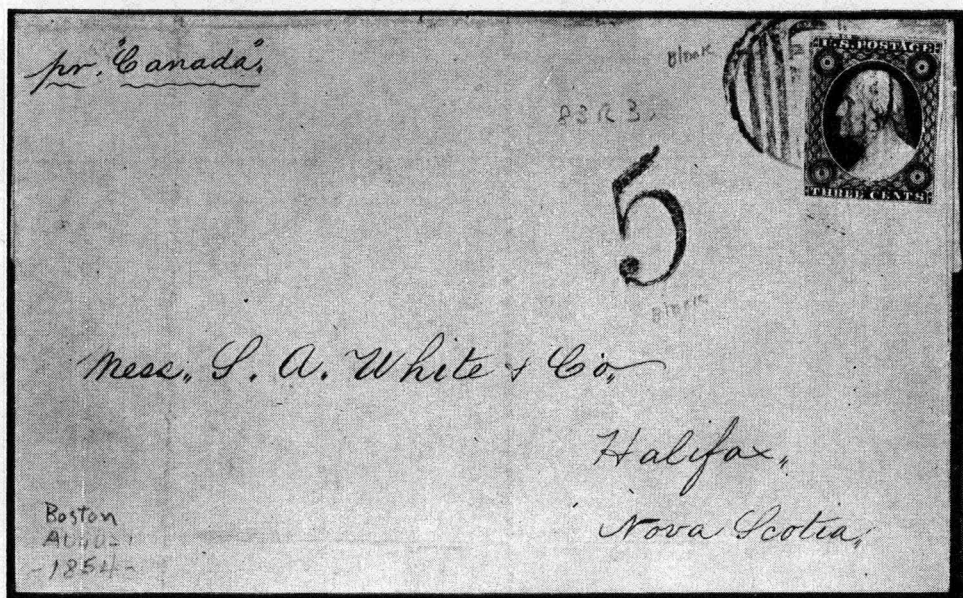 pr. "Canada"
Black
U.S. POSTAGE
THREE CENTS
5
Black
Mess,, S. A. White & Co,,
Halifax,,
Nova Scotia,
Boston
-1854-